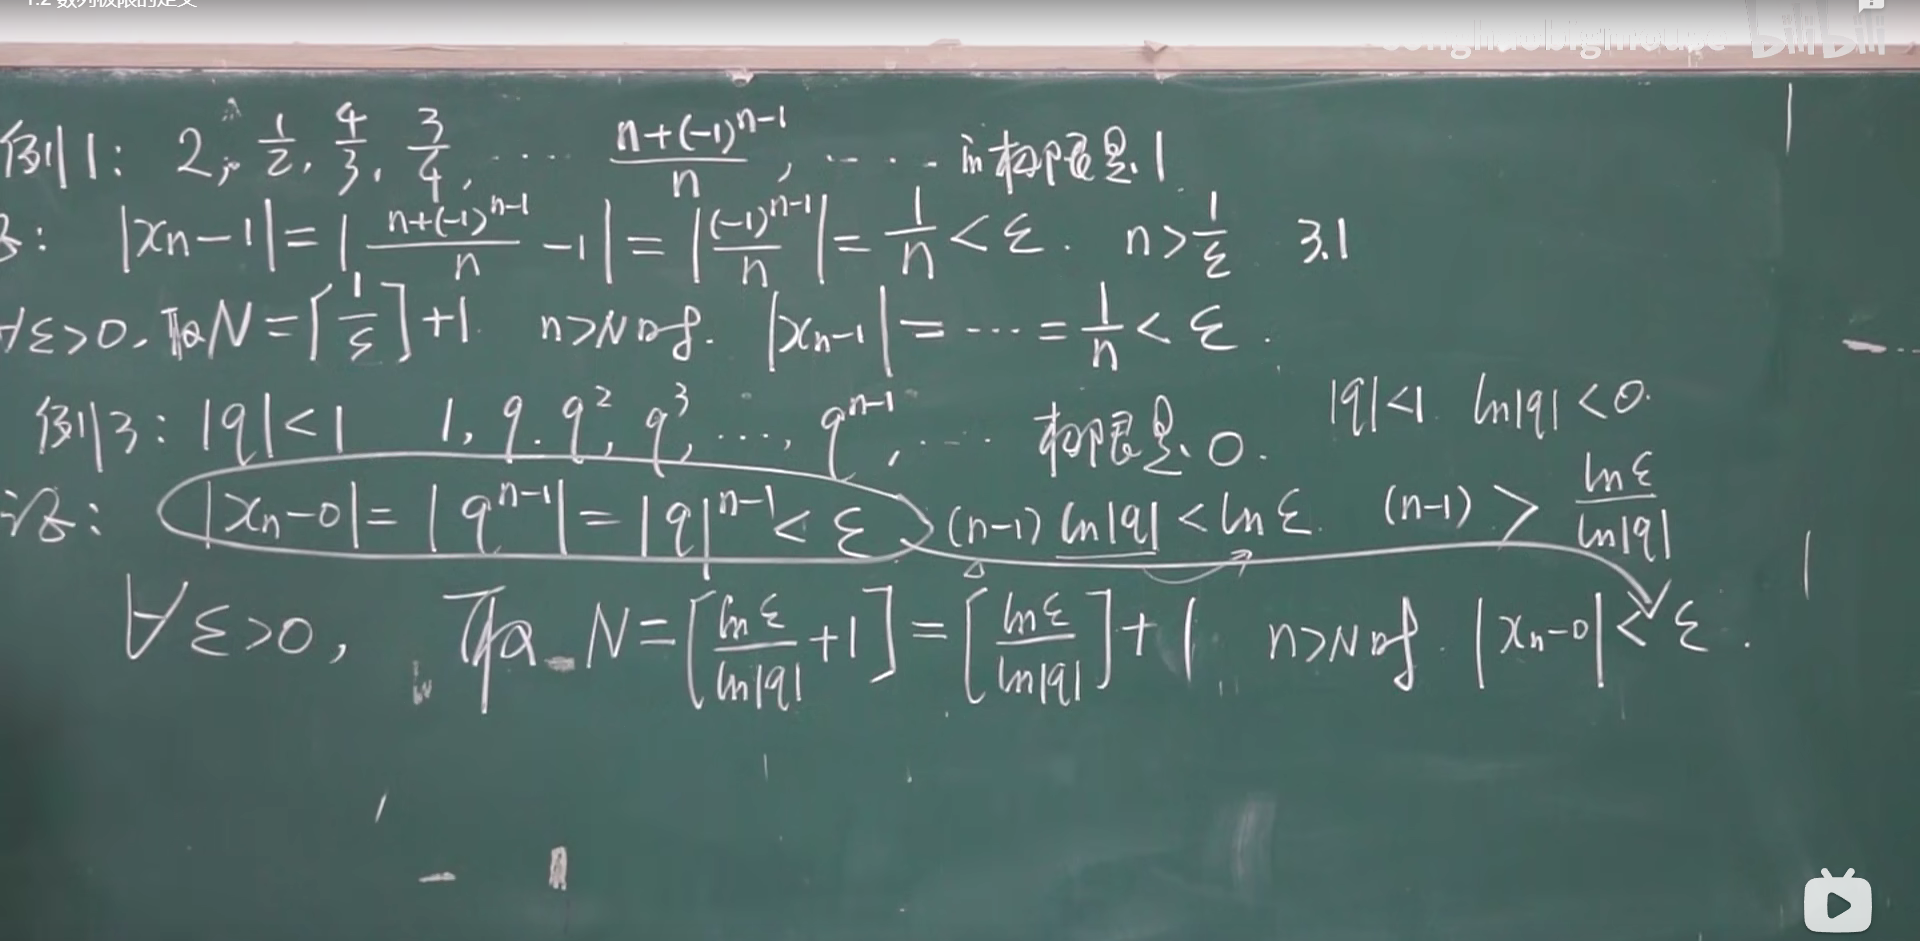 1.2 数列极限的定义
bilibili
例1: 2, 1/2, 4/3, 3/4, .... (n+(-1)^{n-1})/n, ..... 的极限是 1
证: |x_n-1| = |(n+(-1)^{n-1})/n -1| = |(-1)^{n-1}/n| = 1/n < ε. n > 1/ε 3.1
∀ε>0, 取 N = [1/ε]+1. n>N 时. |x_n-1| = ... = 1/n < ε.
例3: |q|<1 1, q, q^2, q^3, ..., q^{n-1}, .... 极限是 0. |q|<1. ln|q| <0.
证: |x_n-0| = |q^{n-1}| = |q|^{n-1} < ε (n-1) ln|q| < ln ε. (n-1) > ln ε/ln|q|
∀ε>0, 取 N = [ln ε/ln|q| +1] = [ln ε/ln|q|] + 1 n>N 时. |x_n-0| < ε.